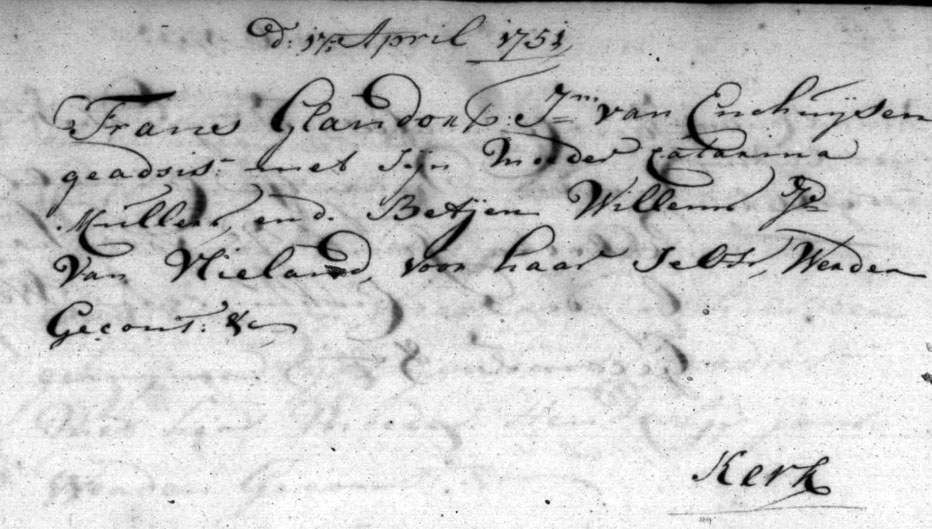 d: 17: April 1751
Frans Glandorf: Jm van Enchuijsen
geadsis: met sijn moeder Catarina
Mullers, end. Betjen Willems Jd
van Vlieland, voor haar selve, werden
Gecont: &c
Kerk